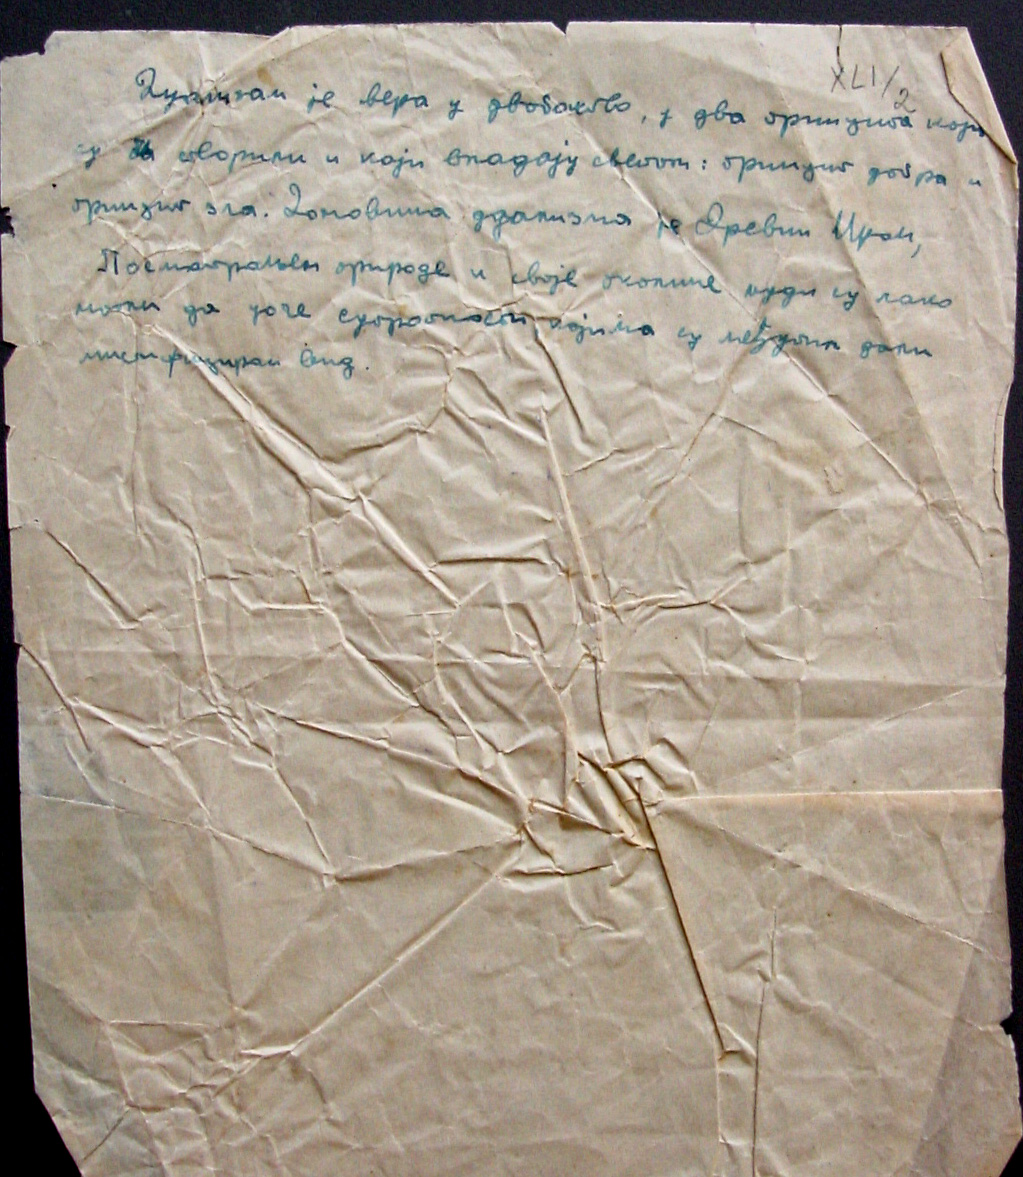 XLI/2
Дуализам је вера у двобоштво, у два принципа који
су створили и који владају светом: принцип добра и
принцип зла. Домовина дуализма је древни Иран,
Посматрањем природе и своје околине људи су лако
могли да уоче супротности, којима су међутим дали
мистифициран вид.